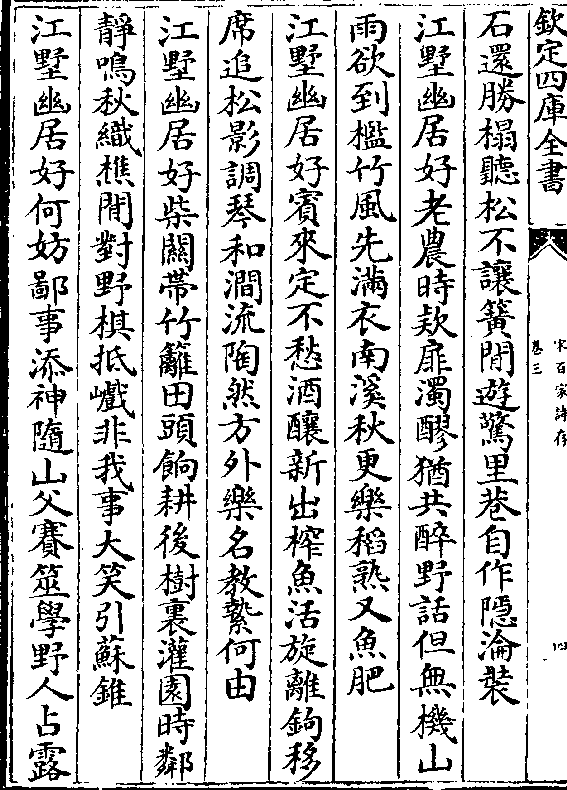 欽定四庫全書
宋百家詩存
卷三
四
石還勝榻聽松不讓簧閒遊驚里巷自作隠淪裝
江墅幽居好老農時欵扉濁醪猶共醉野話但無機山
雨欲到檻竹風先滿衣南溪秋更樂稻熟又魚肥
江墅幽居好賓來定不愁酒釀新出榨魚活旋離鉤移
席追松影調琴和澗流陶然方外樂名教縶何由
江墅幽居好柴關帶竹籬田頭餉耕後樹裏灌園時鄰
靜鳴秋織樵閒對野棋抵巇非我事大笑引蘇錐
江墅幽居好何妨鄙事添神隨山父賽筮學野人占露